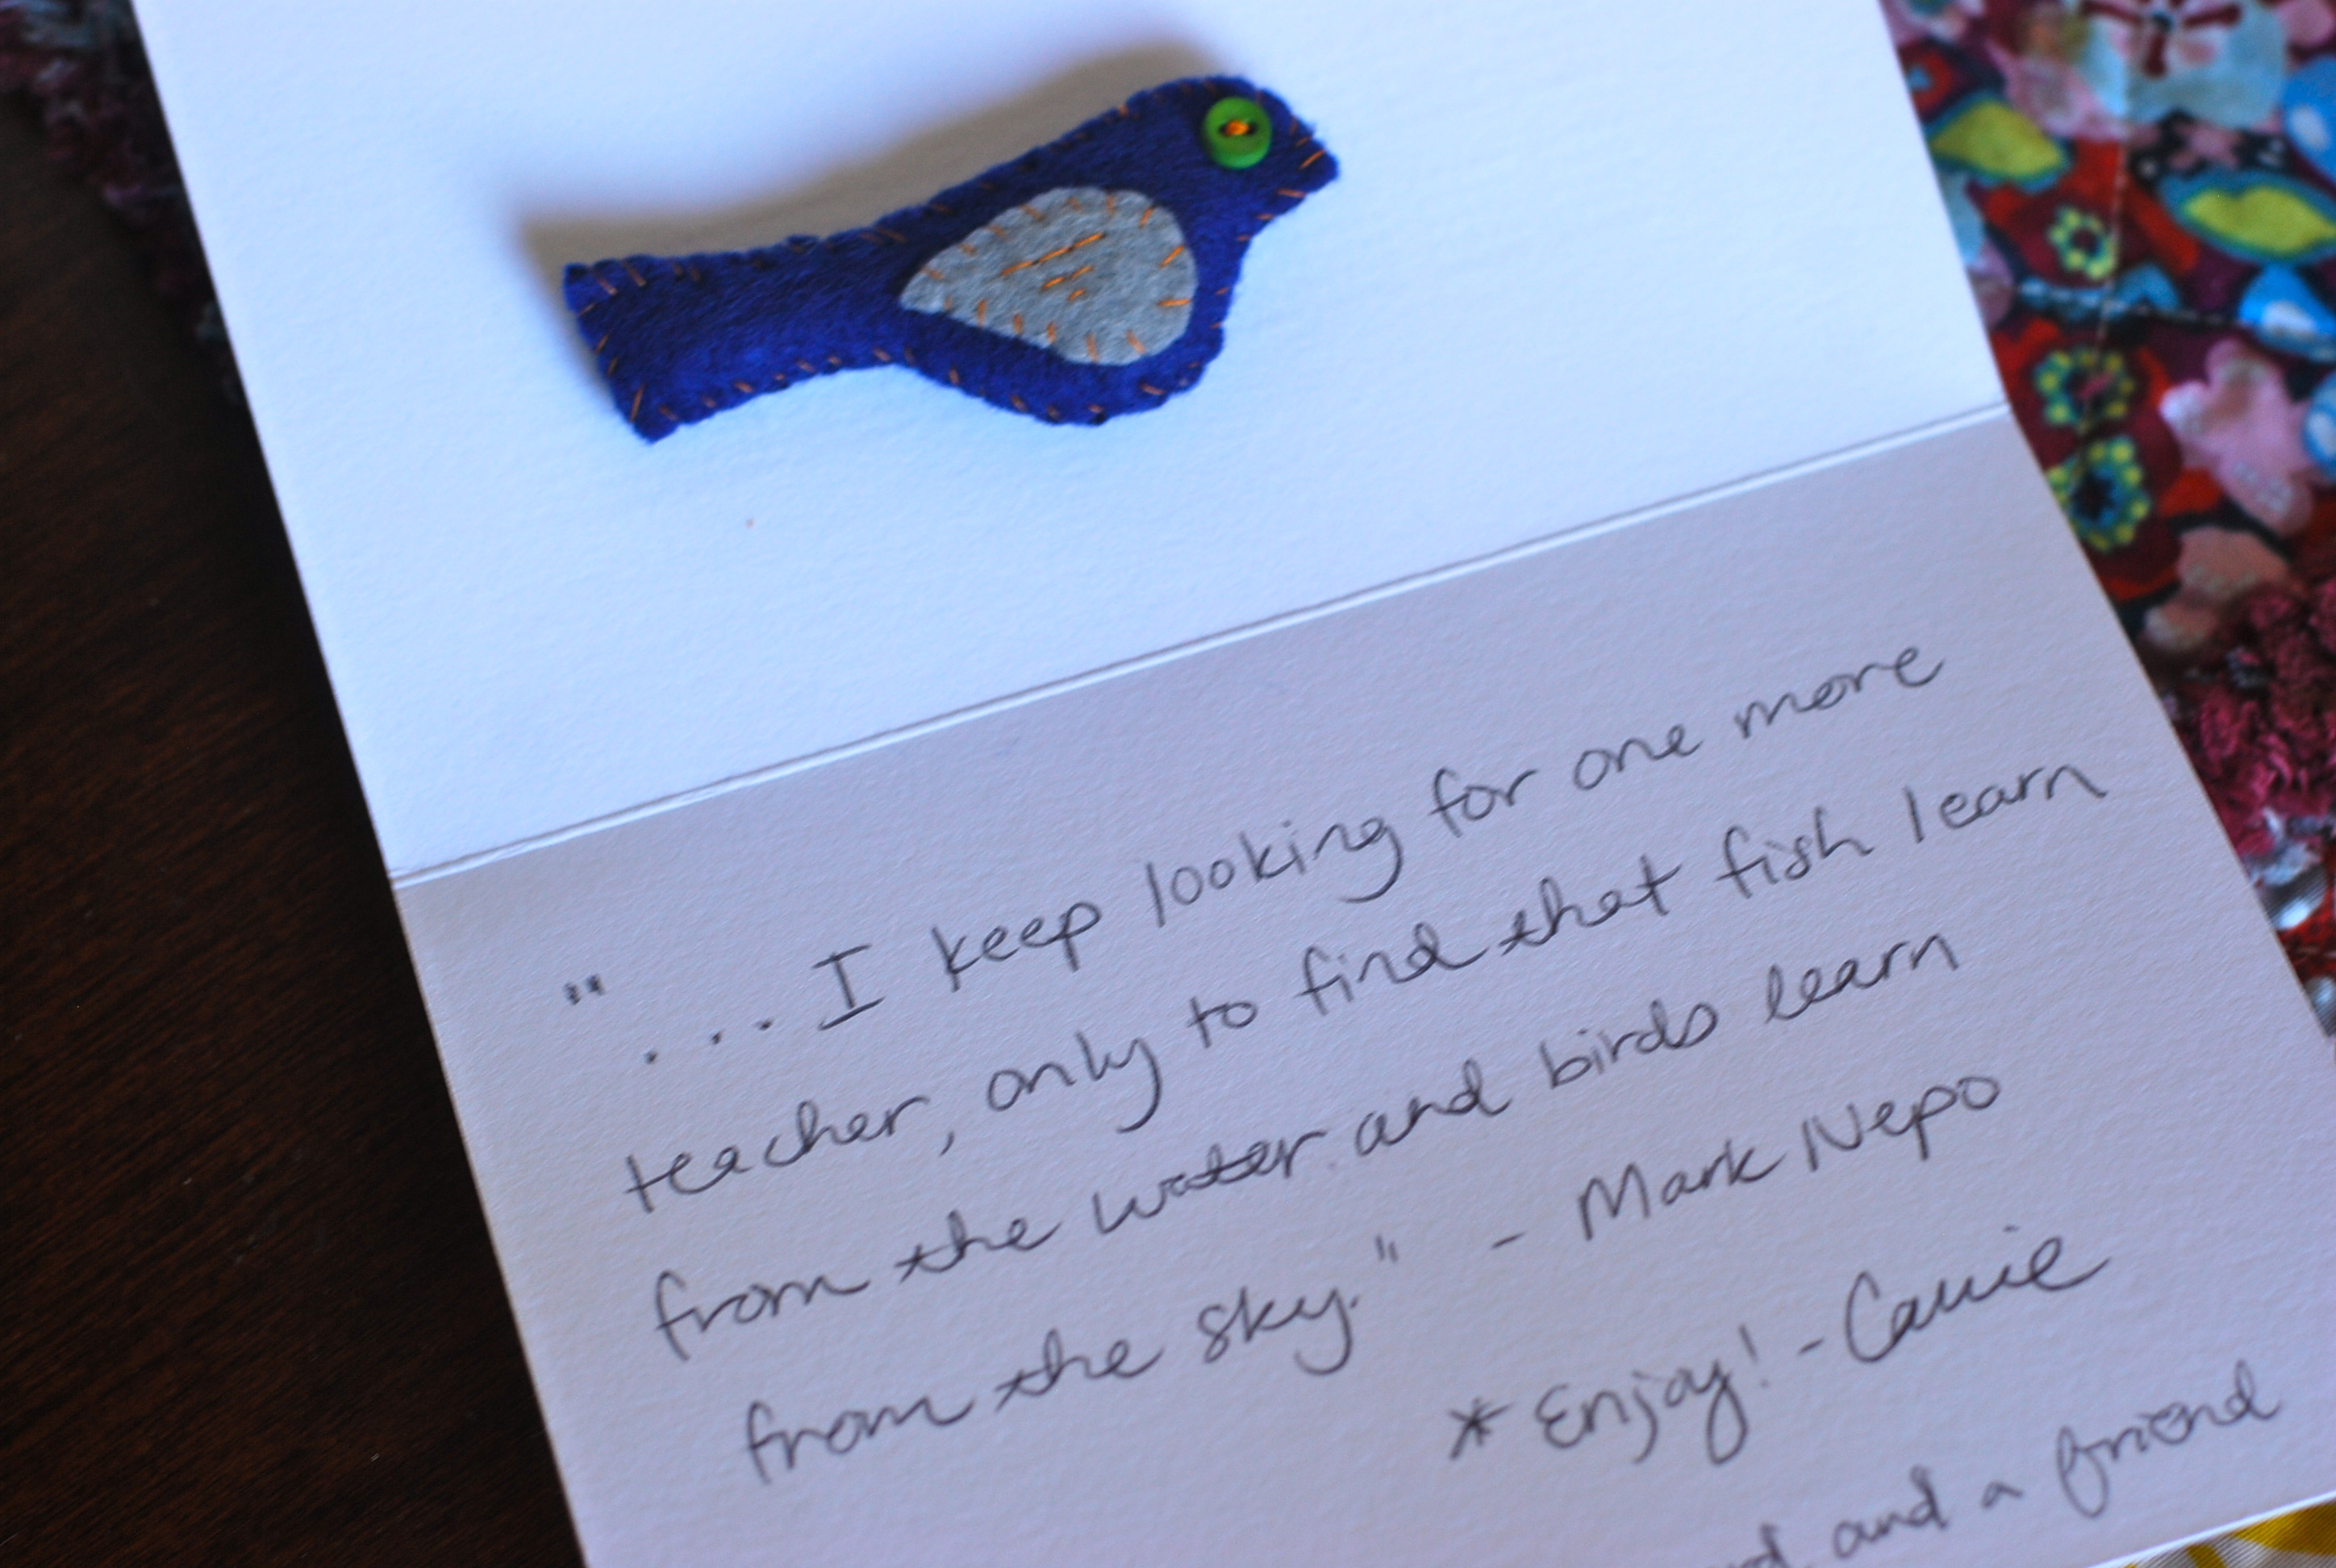 "...I keep looking for one more
teacher, only to find that fish learn
from the water and birds learn
from the sky." - Mark Nepo
* Enjoy! - Carrie
and a friend